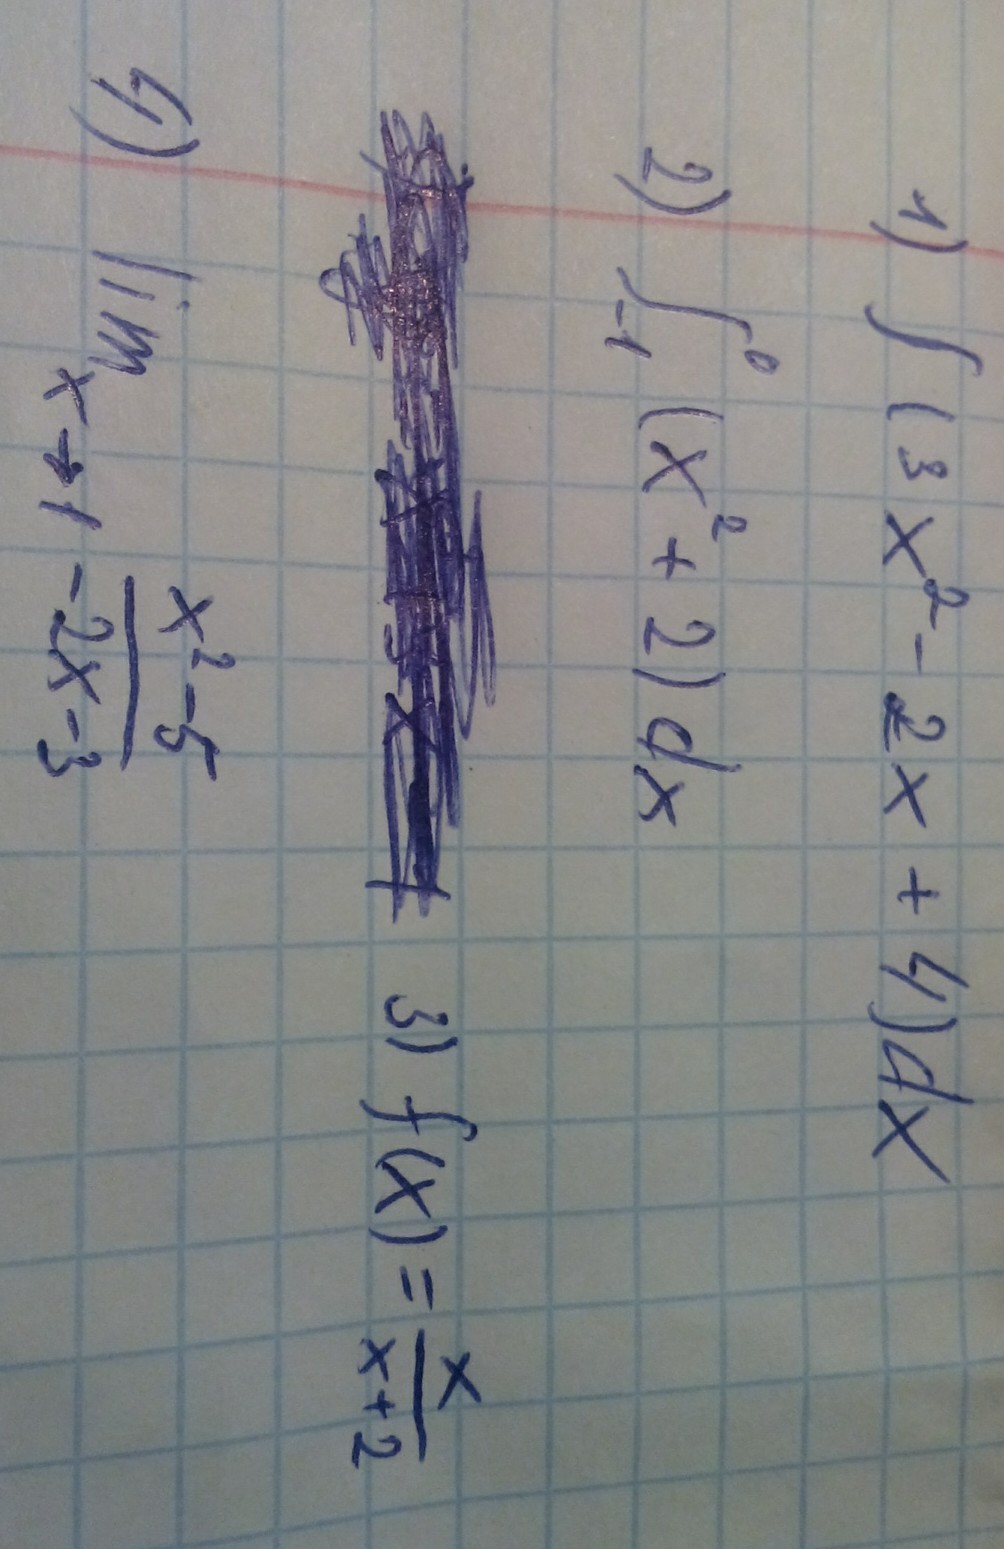 1) ∫ (3x² - 2x + 4) dx
2) ∫₋₁⁰ (x² + 2) dx
3) f(x) = x / (x + 2)
4) lim x→1 (x² - 5) / (-2x - 3)